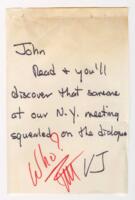 John
Read & you'll
discover that someone
at our N.Y. meeting
squealed on the dialogue
Who?
VJ